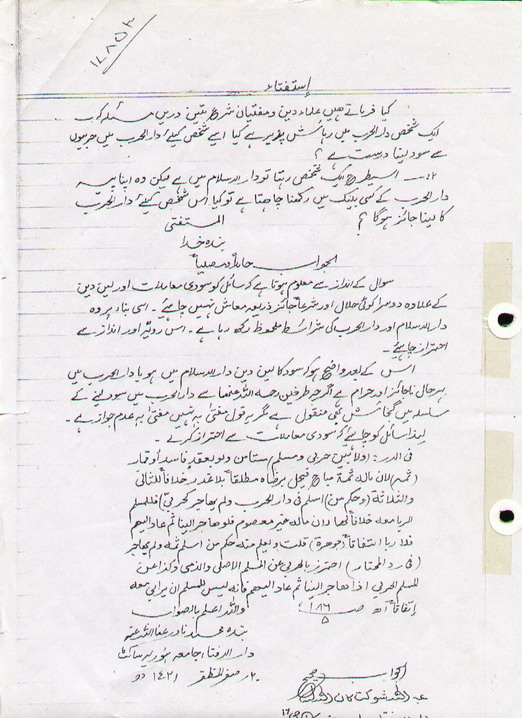 ۱۲۸۵۳
استفتاء
کیا فرماتے ہیں علماء دین و مفتیان شرع متین دریں مسئلہ کہ
ایک شخص دار الحرب میں رہائش پذیر ہے کیا ایسے شخص کیلئے دار الحرب میں حربیوں
سے سود لینا درست ہے ؟
۲۔ اسیطرح ایک شخص رہتا تو دار الاسلام میں ہے لیکن وہ اپنا پیسہ
دار الحرب کے کسی بینک میں رکھنا چاہتا ہے تو کیا اس شخص کیلئے دار الحرب
کا لینا جائز ہوگا ؟
المستفتی
بندہ خدا
الجواب حامداً ومصلیاً
سوال کے انداز سے معلوم ہوتا ہے کہ سائل کو سودی معاملات اور لین دین
کے علاوہ دوسرا کوئی حلال اور شرعاً جائز ذریعہ معاش نہیں چاہئے ۔ اسی بناء پر وہ
دار الاسلام اور دار الحرب کی شرائط ملحوظ رکھ رہا ہے ۔ اس رویہ اور انداز سے
احتراز چاہئے ۔
اس کے بعد واضح ہو کہ سود کا لین دین دار الاسلام میں ہو یا دار الحرب میں
بہر حال ناجائز اور حرام ہے اگرچہ طرفین رحمہما اللہ سے دار الحرب میں سود لینے کے
سلسلہ میں گنجائش بھی منقول ہے مگر یہ قول مفتیٰ بہ نہیں مفتیٰ بہ عدم جواز ہے ۔
لہذا سائل کو چاہئے کہ سودی معاملات سے احتراز کرے ۔
فی الدر : (ولا بین حربی ومسلم) مستأمن ولو بعقد فاسد أو قمار
(ثمه) لان ماله ثمة مباح فيحل برضاه مطلقاً بلا غدر خلافاً للثانی
والثلاثة (وحكم من) اسلم فی دار الحرب ولم يهاجر كحربیّ) فللمسلم
الربا معه خلافاً لهما لان ماله غير معصوم فلو هاجر الينا ثم عاد اليهم
فلا ربا اتفاقاً (جوهرة) قلت ويعلم منه حكم من اسلما ثمه ولم يهاجر
(فی رد المحتار) احترز بالحربی عن المسلم الاصلی والذمی وكذا عن
المسلم الحربی اذا هاجر الينا ثم عاد اليهم فانه ليس للمسلم ان يرابی معه
إتفاقاً اھ ص ۱۸۶ / ۵
واللہ اعلم بالصواب
بندہ محمد نادر عفا اللہ عنہ
دار الافتاء جامعہ
۲۰ صفر المظفر ۱۴۲۱ ھ
الجواب صحیح